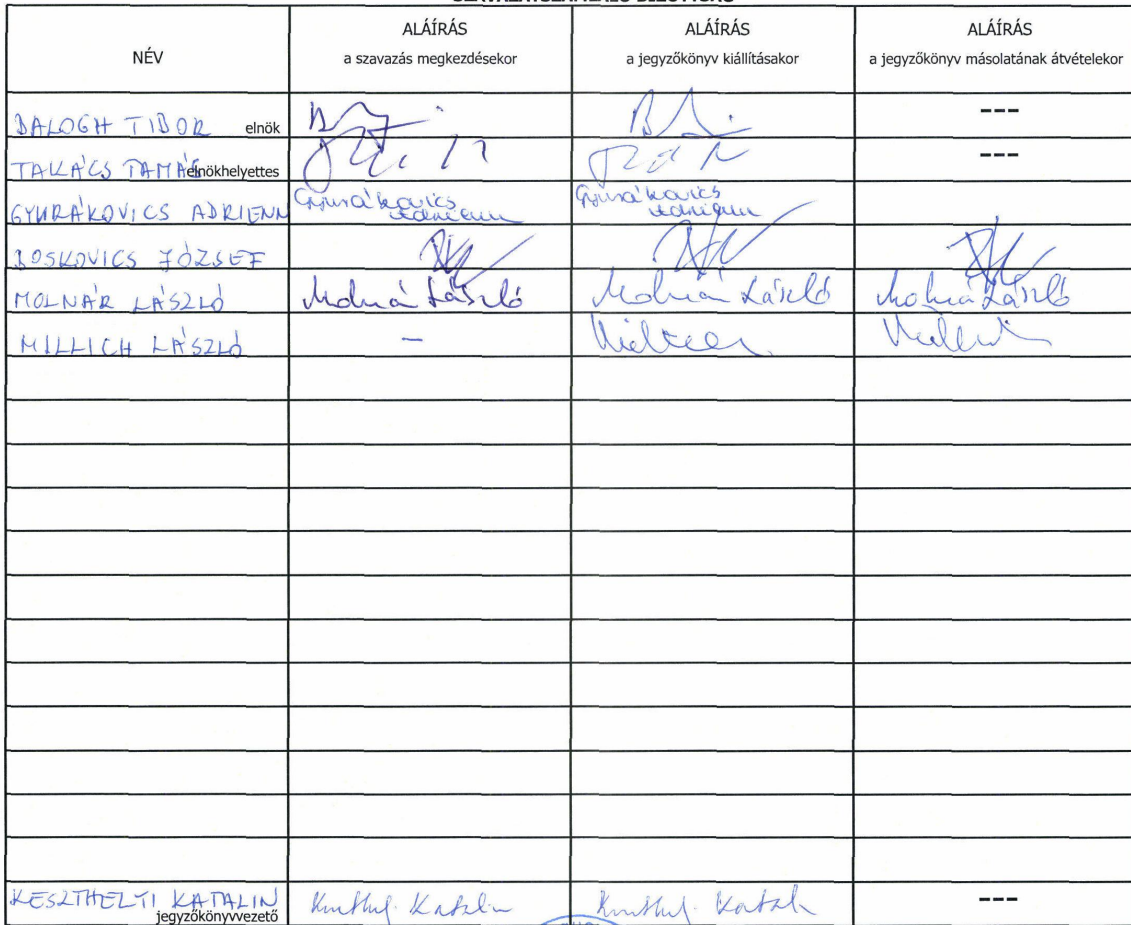 NÉV
ALÁÍRÁS
a szavazás megkezdésekor
ALÁÍRÁS
a jegyzőkönyv kiállításakor
ALÁÍRÁS
a jegyzőkönyv másolatának átvételekor
BALOGH TIBOR elnök ---
TAKÁCS TAMÁS elnökhelyettes ---
GYURÁKOVICS ADRIENN Gyurákovics Gyurákovics
Adrienn Adrienn
BOSKOVICS JÓZSEF
MOLNÁR LÁSZLÓ Molnár László Molnár László Molnár László
MILLICH LÁSZLÓ –
KESZTHELYI KATALIN Katalin Katalin ---
jegyzőkönyvvezető